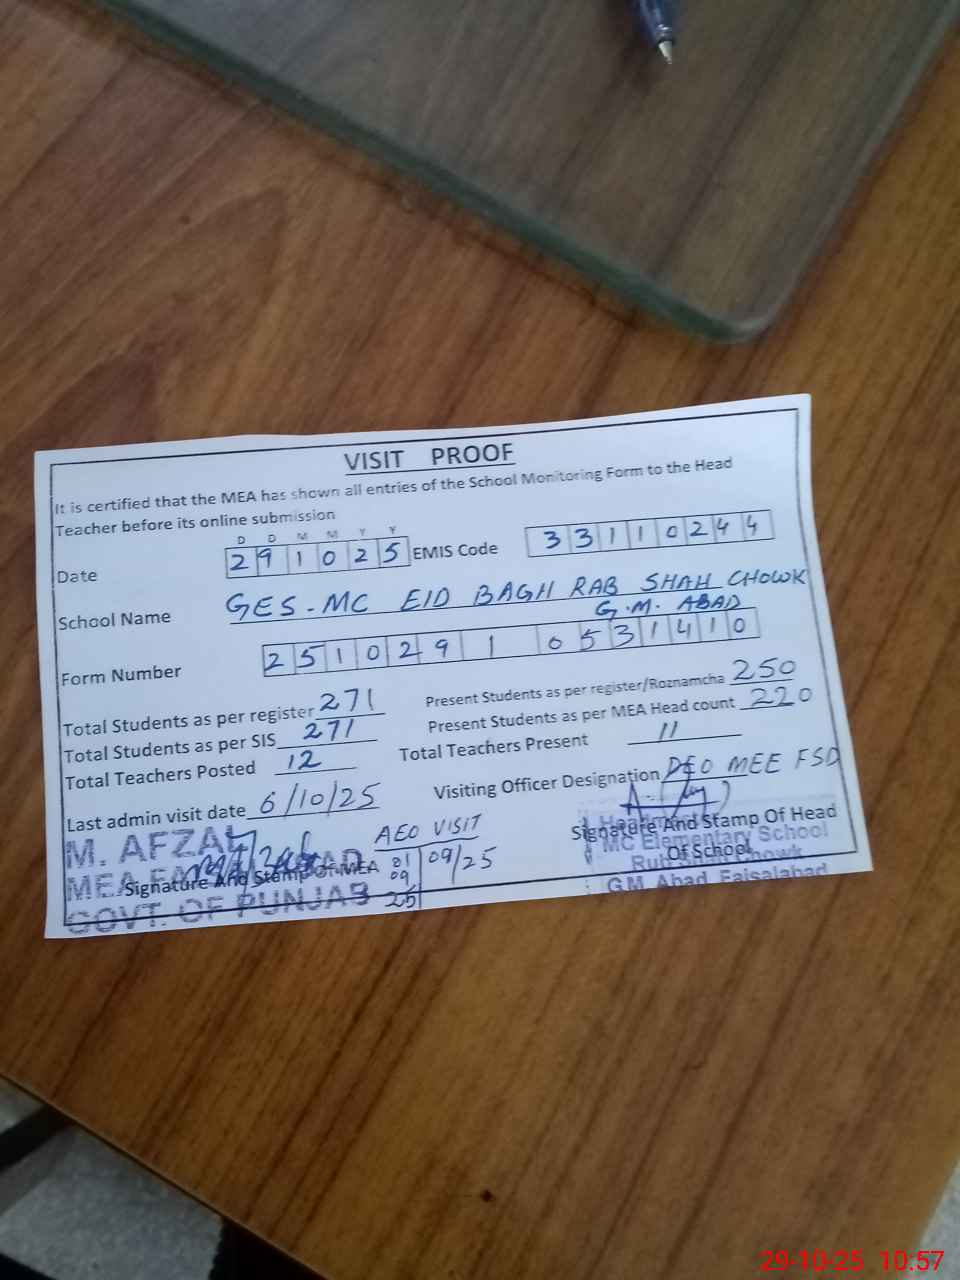 VISIT PROOF
It is certified that the MEA has shown all entries of the School Monitoring Form to the Head
Teacher before its online submission
D D M M Y Y
Date 2 9 1 0 2 5 EMIS Code 3 3 1 1 0 2 4 4
School Name GES-MC EID BAGH RAB SHAH CHOWK
G.M. ABAD
Form Number 2 5 1 0 2 9 1 0 5 3 1 4 1 0
Total Students as per register 271 Present Students as per register/Roznamcha 250
Total Students as per SIS 271 Present Students as per MEA Head count 220
Total Teachers Posted 12 Total Teachers Present 11
Last admin visit date 6/10/25 Visiting Officer Designation DEO MEE FSD
AEO VISIT
01 09/25
09
25
M. AFZAL
MEA FAISALABAD
GOVT. OF PUNJAB
Signature And Stamp Of MEA
Signature And Stamp Of Head
Of School
MC Elementary School
Chowk
G.M. Abad Faisalabad
29-10-25 10:57